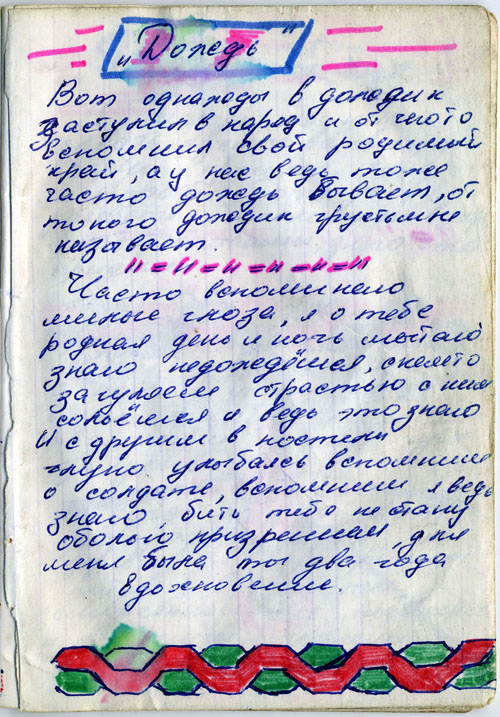 "Дождь"
Вот однажды в дождик
заступил в наряд и от чего то
вспомнил свой родимый
край, а у нас ведь тоже
часто дождь бывает, от
того дождик грусть мне
называет.
"="="="="="
Часто вспоминаю
милые глаза, я о тебе
родная день и ночь мечтаю
знаю недождёшся, с кем то
загуляеш страстью с ним
сольёшся и ведь это знаю
И с другим в постели
глупо улыбаясь вспомниш
о солдате, вспомниш я ведь
знаю, бить тебя не стану
оболью призреннем, для
меня была ты два года
вдохновение.